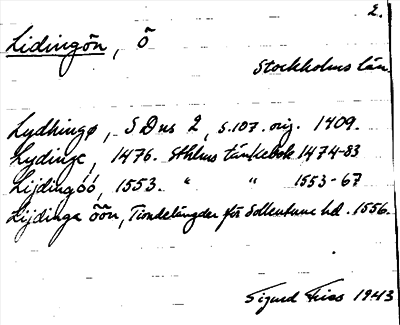 2.
Lidingön, ö
Stockholms län.
Lydhingø, S Dns 2, s. 107. orig. 1409.
Lydinge, 1476. Sthlms tänkebok 1474-83
Lijdingöö, 1553. " " 1553-67
Lijdinga öön, Tiondelängder för Sollentuna hd. 1556.
Sigurd Fries 1943